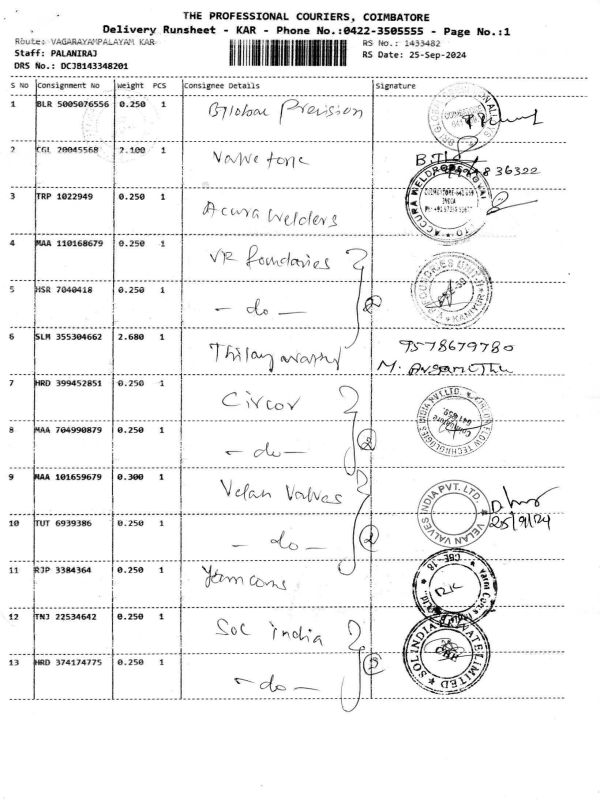 THE PROFESSIONAL COURIERS, COIMBATORE
Delivery Runsheet - KAR - Phone No.:0422-3505555 - Page No.:1
Route: VAGARAYAMPALAYAM KAR
RS No.: 1433482
Staff: PALANIRAJ
RS Date: 25-Sep-2024
DRS No.: DCJB143348201
S No Consignment No Weight PCS Consignee Details Signature
1 BLR 5005076556 0.250 1 Precision
2 CGL 20045568 2.100 1 Valvetone
836322
3 TRP 1022949 0.250 1 Acura Welders
4 MAA 110168679 0.250 1 VR foundaries
5 HSR 7040418 0.250 1 - do -
6 SLM 355304662 2.680 1
9578679780
7 HRD 399452851 0.250 1 Circor
8 MAA 704990879 0.250 1 - do - 2
9 MAA 101659679 0.300 1 Velan Valves VELAN VALVES INDIA PVT. LTD.
25/9/24
10 TUT 6939386 0.250 1 - do - 2
11 RJP 3384364 0.250 1
12 TNJ 22534642 0.250 1 Soc india
SOLINDIA PRIVATE LIMITED
13 HRD 374174775 0.250 1 - do -